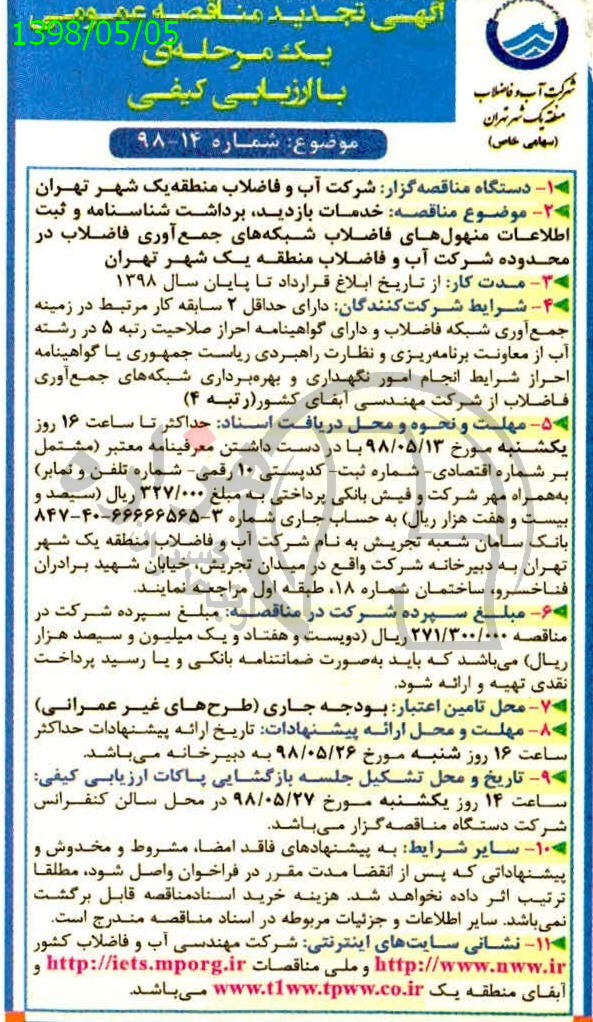 آگهی تجدید مناقصه عمومی
1398/05/05
یک مرحله‌ای
با ارزیابی کیفی
شرکت آب و فاضلاب
منطقه یک شهر تهران
(سهامی خاص)
موضوع: شماره ۱۴-۹۸
۱- دستگاه مناقصه‌گزار: شرکت آب و فاضلاب منطقه‌یک شهر تهران
۲- موضوع مناقصه: خدمات بازدید، برداشت شناسنامه و ثبت
اطلاعات منهول‌های فاضلاب شبکه‌های جمع‌آوری فاضلاب در
محدوده شرکت آب و فاضلاب منطقه یک شهر تهران
۳- مدت کار: از تاریخ ابلاغ قرارداد تا پایان سال ۱۳۹۸
۴- شرایط شرکت‌کنندگان: دارای حداقل ۲ سابقه کار مرتبط در زمینه
جمع‌آوری شبکه فاضلاب و دارای گواهینامه احراز صلاحیت رتبه ۵ در رشته
آب از معاونت برنامه‌ریزی و نظارت راهبردی ریاست جمهوری یا گواهینامه
احراز شرایط انجام امور نگهداری و بهره‌برداری شبکه‌های جمع‌آوری
فاضلاب از شرکت مهندسی آبفای کشور(رتبه ۴)
۵- مهلت و نحوه و محل دریافت اسناد: حداکثر تا ساعت ۱۶ روز
یکشنبه مورخ ۹۸/۰۵/۱۳ با در دست داشتن معرفینامه معتبر (مشتمل
بر شماره اقتصادی- شماره ثبت- کدپستی ۱۰ رقمی- شماره تلفن و نمابر)
به‌همراه مهر شرکت و فیش بانکی پرداختی به مبلغ ۳۲۷/۰۰۰ ریال (سیصد و
بیست و هفت هزار ریال) به حساب جاری شماره ۳-۶۶۶۶۶۵۶۵-۴۰-۸۴۷
بانک سامان شعبه تجریش به نام شرکت آب و فاضلاب منطقه یک شهر
تهران به دبیرخانه شرکت واقع در میدان تجریش، خیابان شهید برادران
فناخسرو، ساختمان شماره ۱۸، طبقه اول مراجعه نمایند.
۶- مبلغ سپرده شرکت در مناقصه: مبلغ سپرده شرکت در
مناقصه ۲۷۱/۳۰۰/۰۰۰ ریال (دویست و هفتاد و یک میلیون و سیصد هزار
ریال) می‌باشد که باید به‌صورت ضمانتنامه بانکی و یا رسید پرداخت
نقدی تهیه و ارائه شود.
۷- محل تامین اعتبار: بودجه جاری (طرح‌های غیر عمرانی)
۸- مهلت و محل ارائه پیشنهادات: تاریخ ارائه پیشنهادات حداکثر
ساعت ۱۶ روز شنبه مورخ ۹۸/۰۵/۲۶ به دبیرخانه می‌باشد.
۹- تاریخ و محل تشکیل جلسه بازگشایی پاکات ارزیابی کیفی:
ساعت ۱۴ روز یکشنبه مورخ ۹۸/۰۵/۲۷ در محل سالن کنفرانس
شرکت دستگاه مناقصه‌گزار می‌باشد.
۱۰- سایر شرایط: به پیشنهادهای فاقد امضا، مشروط و مخدوش و
پیشنهاداتی که پس از انقضا مدت مقرر در فراخوان واصل شود، مطلقا
ترتیب اثر داده نخواهد شد. هزینه خرید اسنادمناقصه قابل برگشت
نمی‌باشد. سایر اطلاعات و جزئیات مربوطه در اسناد مناقصه مندرج است.
۱۱- نشانی سایت‌های اینترنتی: شرکت مهندسی آب و فاضلاب کشور
http://www.nww.ir و ملی مناقصات http://iets.mporg.ir و
آبفای منطقه یک www.t1ww.tpww.co.ir می‌باشد.